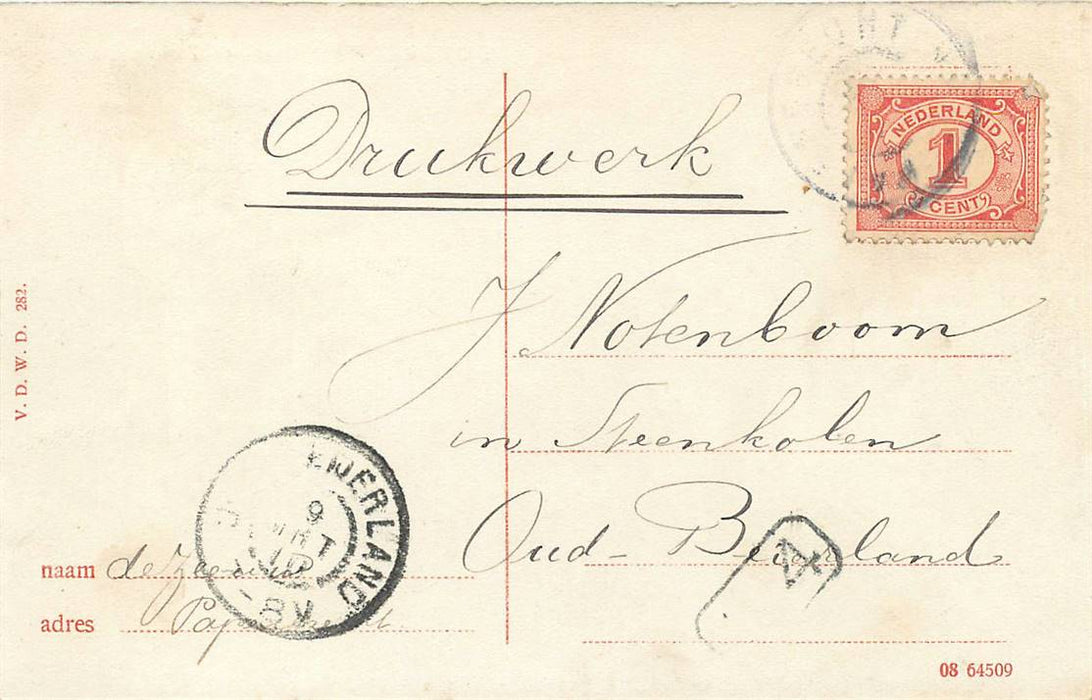 Drukwerk
NEDERLAND
1
CENT
J Notenboom
in Steenkolen
Oud-Beijerland
V. D. W. D. 282.
EIJERLAND
9
MRT
10
8V
24
naam de
adres
08 64509